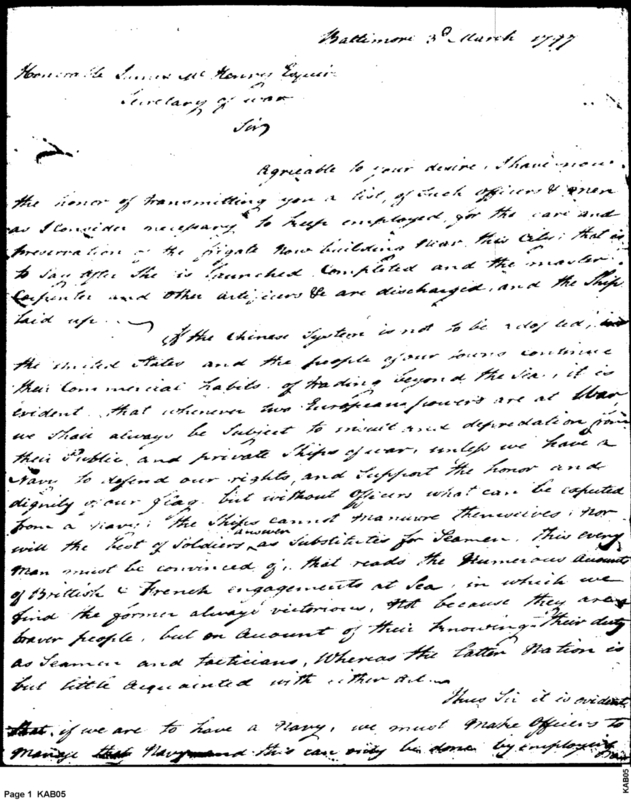 Baltimore 3d March 1797
Honorable James Mc Henry Esquire
Secretary of war
Sir
Agreeable to your desire, I have now
the honor of transmitting you a list, of such officers & men
as I consider necessary to keep employed, for the care and
preservation of the frigate Now building Near this City: that is
to Say after She is Launched Completed and the master
Carpenter and other artificers &c are discharged, and the Ship
laid up.
If the Chinese System is not to be adopted, in
the United States and the people of our towns continue
their Commercial habits of trading beyond the Sea, it is
evident that whenever two European powers are at War
we Shall always be Subject to insult and depredation from
their Public and private Ships of war, unless we have a
Navy to defend our rights, and Support the honor and
dignity of our flag. but without officers what can be expected
from a Navy; the Ships cannot manuvre themselves; nor
will the best of Soldiers answer as Substitutes for Seamen. This every
Man must be convinced of, that reads the Numerous accounts
of British & French engagements at Sea, in which we
find the former always victorious, Not because they are a
braver people, but on account of their knowing their duty
as Seamen and tacticians, Whereas the latter Nation is
but little acquainted with either art.
Thus Sir it is evident
that if we are to have a Navy, we must make officers to
manage that Navy and this can only be done by employing
Page 1 KAB05
KAB05